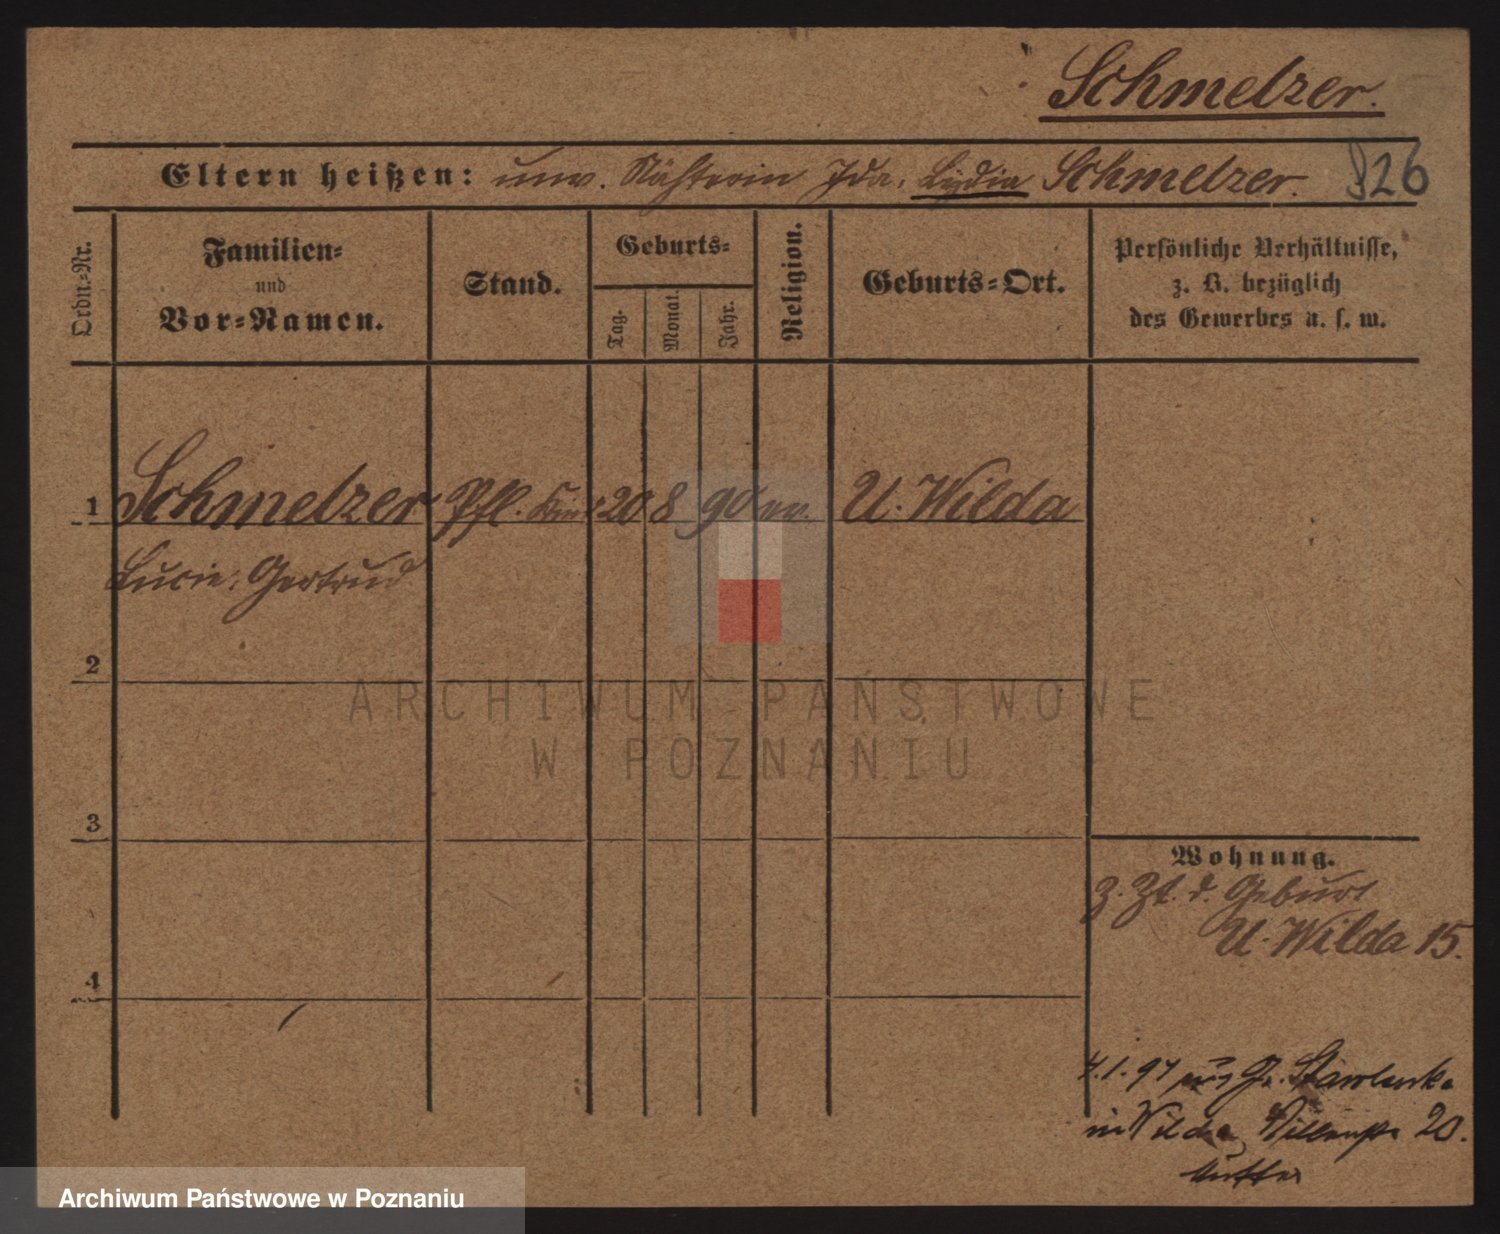 Schmelzer.
Eltern heißen: unv. Nähterin Ida, Lydia Schmelzer. 826
Ordn.-Nr.
Familien-
und
Vor-Namen.
Stand.
Geburts-
Tag.
Monat.
Jahr.
Religion.
Geburts-Ort.
Persönliche Verhältnisse,
z. B. bezüglich
des Gewerbes u. s. w.
1 Schmelzer Pfl. Kind 20 8 90 ev. U. Wilda
Lucie, Gertrud
2
3
4
Wohnung.
z. Zt. d. Geburt
U. Wilda 15.
4.1.97 Gr. Starolenka
in Wilda 20.
Mutter
ARCHIWUM PAŃSTWOWE
W POZNANIU
Archiwum Państwowe w Poznaniu